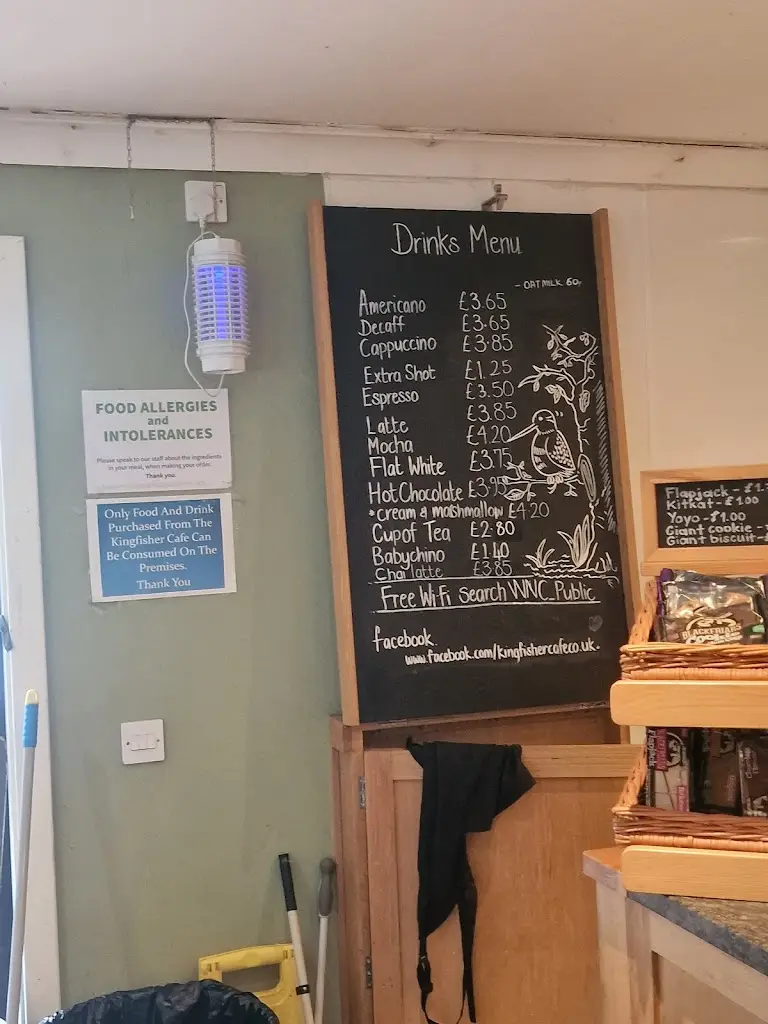 Drinks Menu
- OAT MILK 60p
Americano £3.65
Decaff £3.65
Cappuccino £3.85
Extra Shot £1.25
Espresso £3.50
Latte £3.85
Mocha £4.20
Flat White £3.75
Hot Chocolate £3.95
*cream & marshmallow £4.20
Cup of Tea £2.80
Babychino £1.40
Chai latte £3.85
Free WiFi Search WNC_Public
facebook
www.facebook.com/kingfishercafeco.uk.
FOOD ALLERGIES
and
INTOLERANCES
Please speak to our staff about the ingredients
in your meal, when making your order.
Thank you.
Only Food And Drink
Purchased From The
Kingfisher Cafe Can
Be Consumed On The
Premises.
Thank You
Flapjack - £1.
Kitkat - £1.00
Yoyo - £1.00
Giant cookie -
Giant biscuit -
BLACKFRIARS
Flapjack